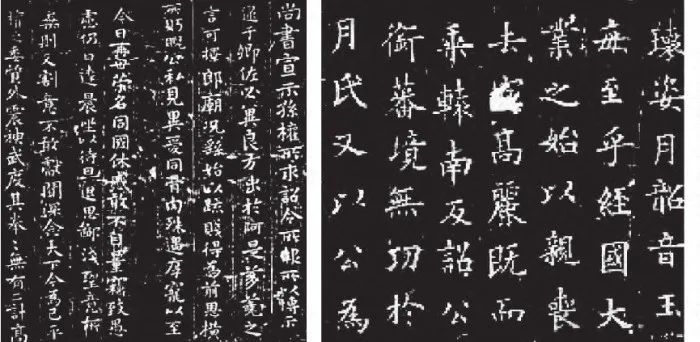 尚書宣示孫權所求詔令所報所以博示
逮于卿佐必冀良方出於阿是芻蕘之
言可擇郎廟況繇始以疏賤得為前恩橫
所眄睨公私見異愛同骨肉殊遇厚寵以至
今日再世榮名同國休慼敢不自量竊致愚
慮仍日達晨坐以待旦退思鄙淺聖意所
棄則又割意不敢獻聞深念天下今為已平
權之委質外震神武度其拳〻無有二計高
瓌姿月韶音玉
每至乎經國大
業之始以親喪
未高麗既而
乘轅南反詔公
銜蕃境無功於
月氏又以公為